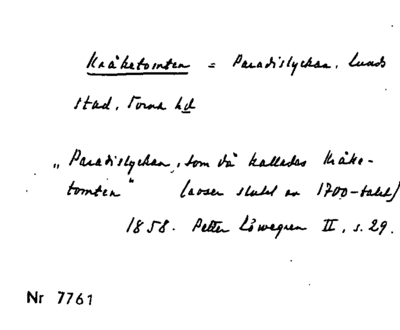 Kråketomten = Paradislyckan. Lunds
stad. Torna hd
„Paradislyckan, som då kallades Kråke-
tomten" (avser slutet av 1700-talet)
1858. Petter Löwegren II, s. 29.
Nr 7761